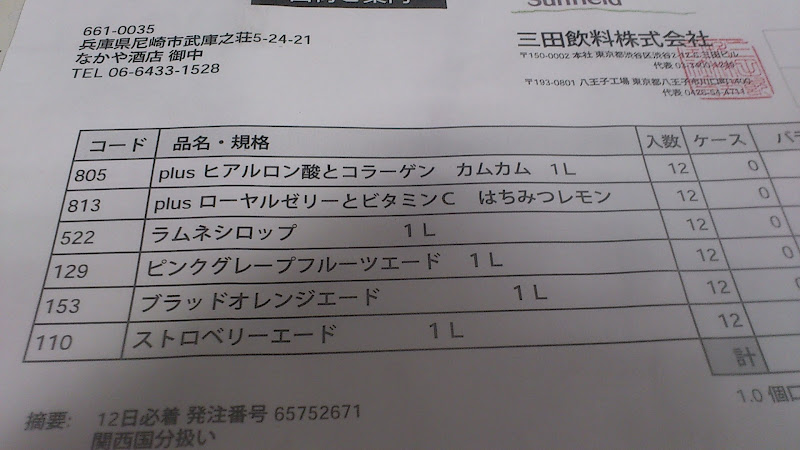 出荷ご案内
Sunfield
661-0035
兵庫県尼崎市武庫之荘5-24-21
なかや酒店 御中
TEL 06-6433-1528
三田飲料株式会社
〒150-0002 本社 東京都渋谷区渋谷
代表
〒193-0801 八王子工場 東京都八王子市川口町
代表
コード 品名・規格 入数 ケース バラ
805 plus ヒアルロン酸とコラーゲン カムカム 1L 12 0
813 plus ローヤルゼリーとビタミンC はちみつレモン 12 0
522 ラムネシロップ 1L 12 0
129 ピンクグレープフルーツエード 1L 12 0
153 ブラッドオレンジエード 1L 12 0
110 ストロベリーエード 1L 12
計
1.0 個口
摘要: 12日必着 発注番号 65752671
関西国分扱い